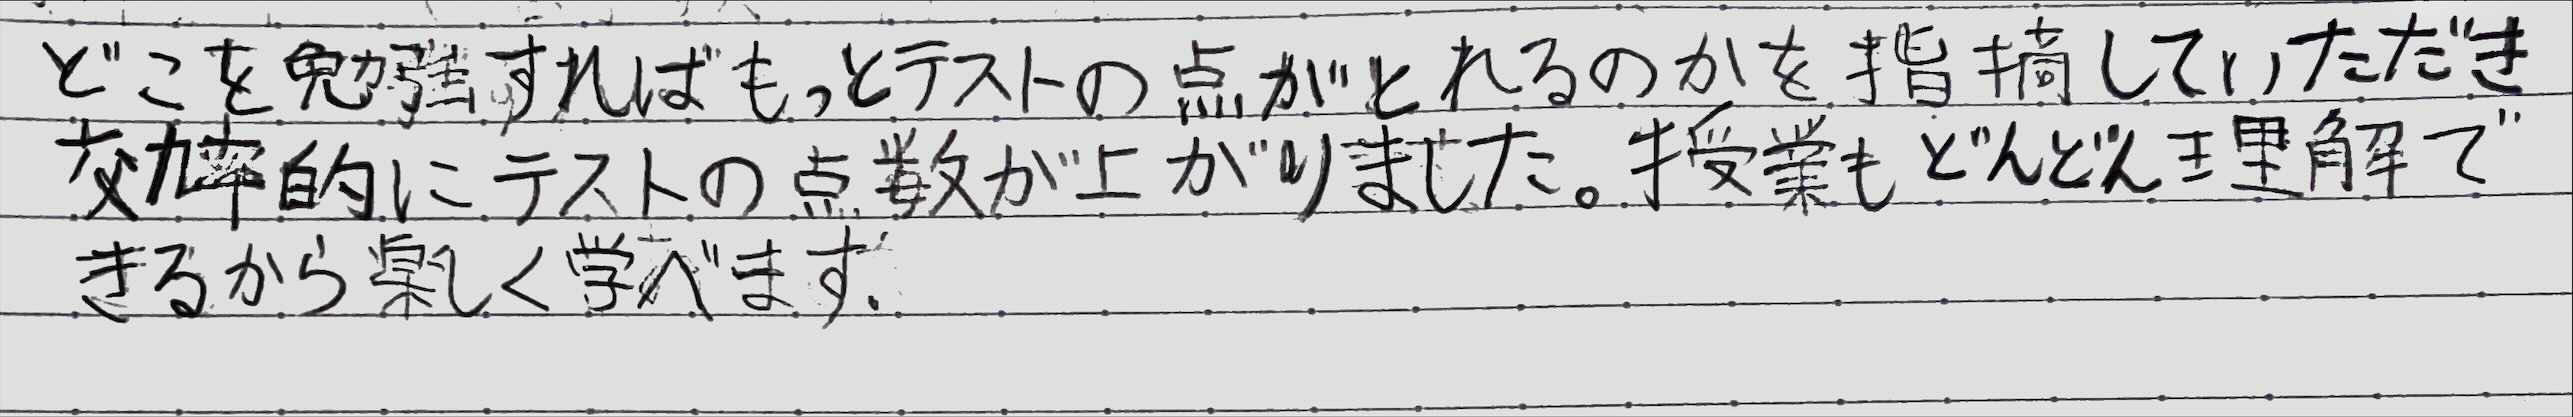 どこを勉強すればもっとテストの点がとれるのかを指摘していただき
効率的にテストの点数が上がりました。授業もどんどん理解で
きるから楽しく学べます.